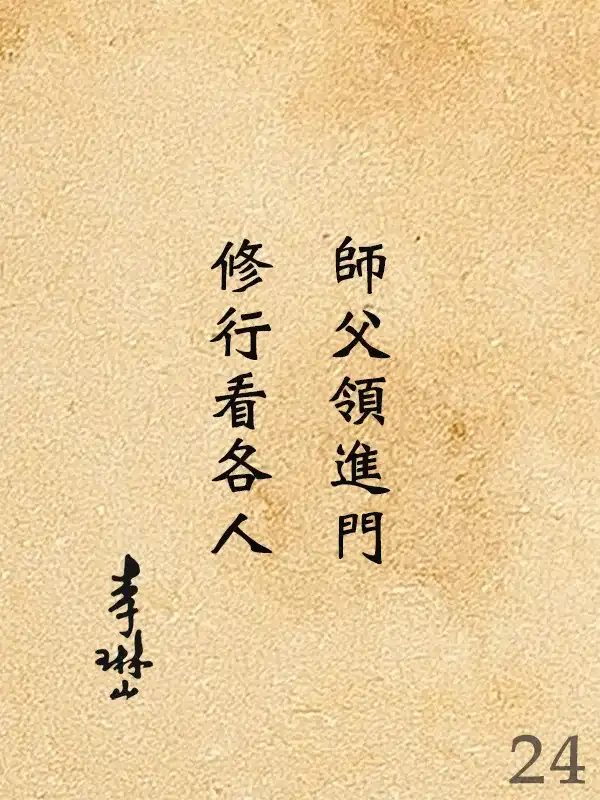 師父領進門
修行看各人
李琳山
24